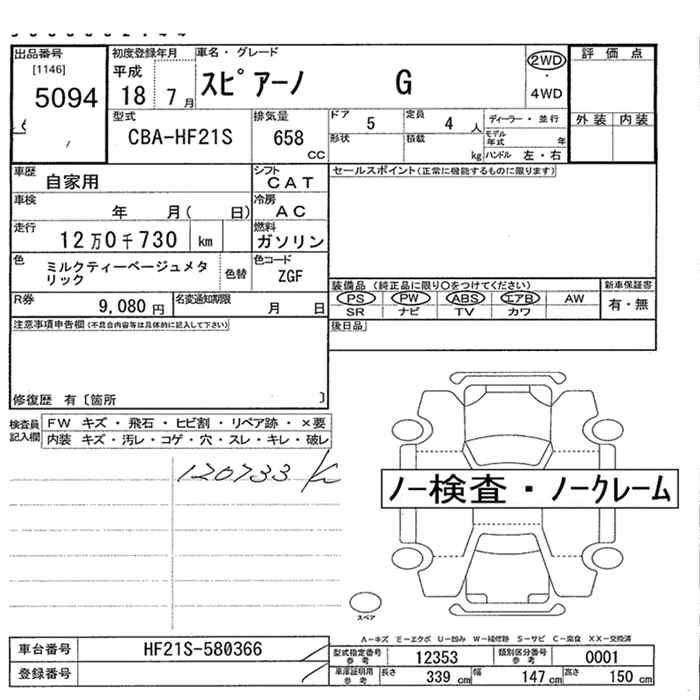 出品番号 初度登録年月 車名・グレード 2WD 評価点
[1146] 平成 ・
5094 18 7月 スピアーノ G 4WD
型式 排気量 ドア 5 定員 4人 ディーラー・並行 外装 内装
CBA-HF21S 658 cc 形状 積載 kg モデル年式 年
ハンドル 左・右
車歴 自家用 シフト CAT セールスポイント(正常に機能するものに限ります)
車検 年 月( 日) 冷房 AC
走行 12万0千730 km 燃料 ガソリン
色 ミルクティーベージュメタリック 色替 色コード ZGF
装備品 (純正品に限り○をつけてください) 新車保証書
PS PW ABS エアB AW 有・無
SR ナビ TV カワ
R券 9,080円 名変通知期限 月 日
後日品
注意事項申告欄(不具合内容等は具体的に記入して下さい)
修復歴 有〔箇所 〕
検査員記入欄 FW キズ・飛石・ヒビ割・リペア跡・×要
内装 キズ・汚レ・コゲ・穴・スレ・キレ・破レ
120733 K
ノー検査・ノークレーム
スペア
A-キズ E-エクボ U-凹み W-補修跡 S-サビ C-腐食 XX-交換済
車台番号 HF21S-580366
登録番号
型式指定番号参考 12353 類別区分番号参考 0001
車庫証明用参考 長さ 339 cm 幅 147 cm 高さ 150 cm